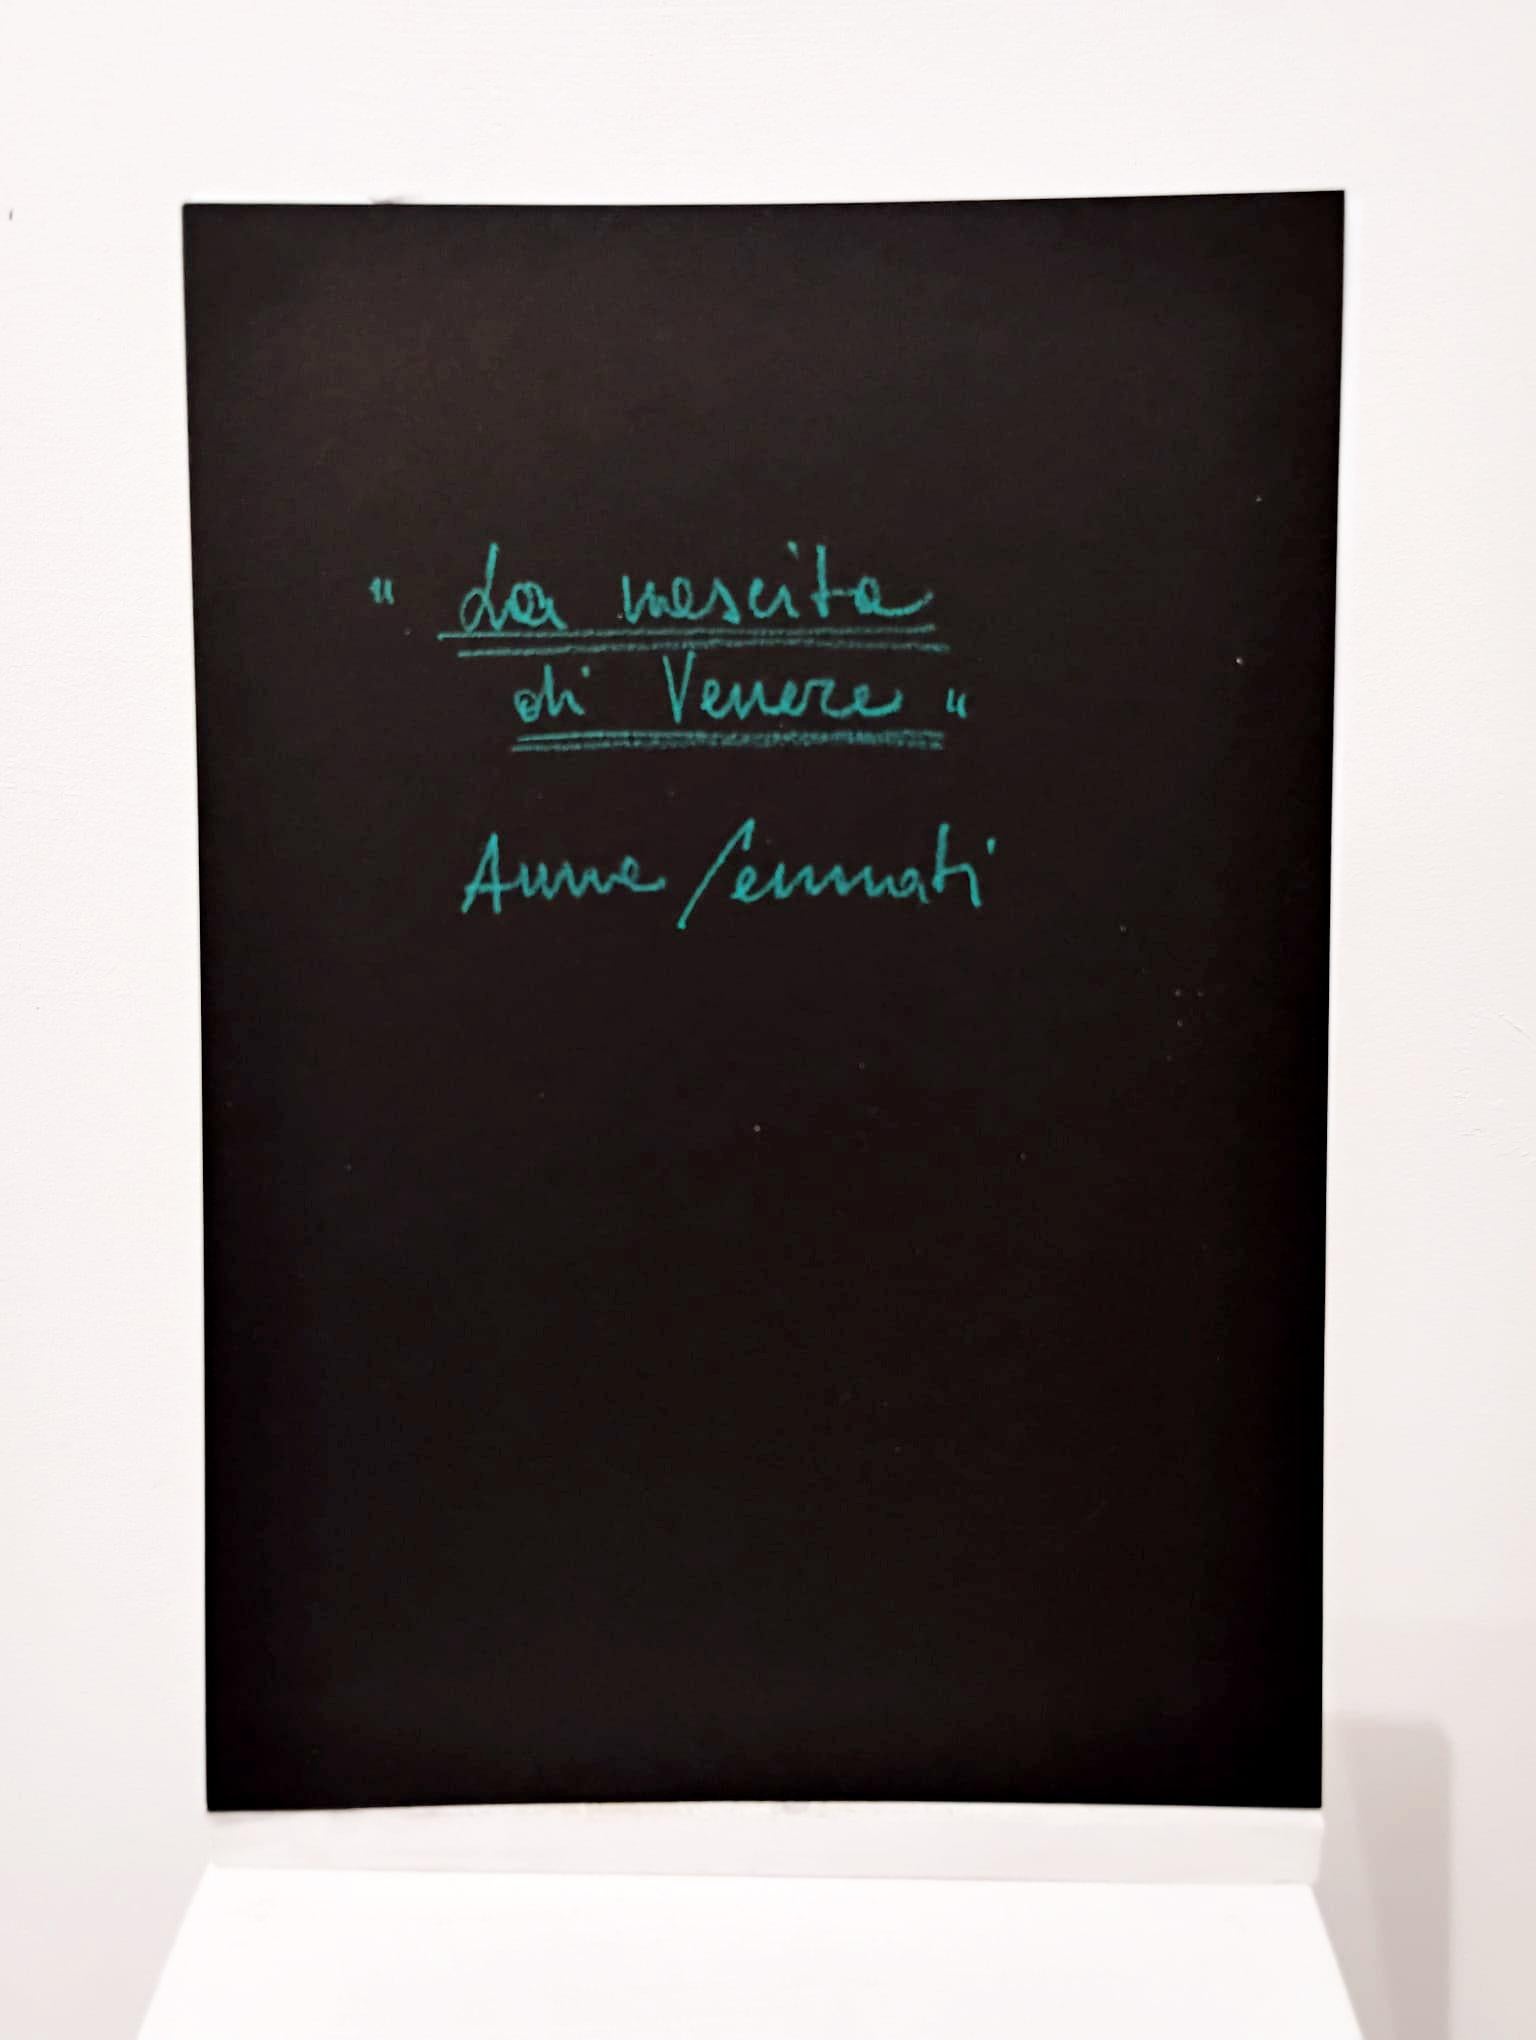 " La nascita
di Venere "
Anna Sennati